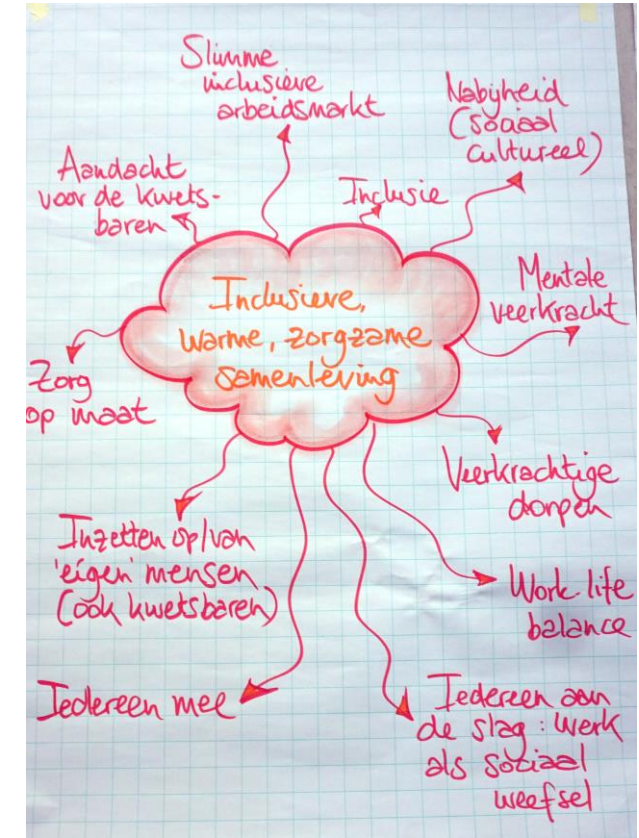 Slimme
inclusieve
arbeidsmarkt
Nabijheid
(sociaal
cultureel)
Aandacht
voor de kwets-
baren
Inclusie
Inclusieve,
warme, zorgzame
samenleving
Mentale
veerkracht
Zorg
op maat
Veerkrachtige
dorpen
Inzetten op/van
'eigen' mensen
(ook kwetsbaren)
Work life
balance
Iedereen mee
Iedereen aan
de slag: werk
als sociaal
weefsel